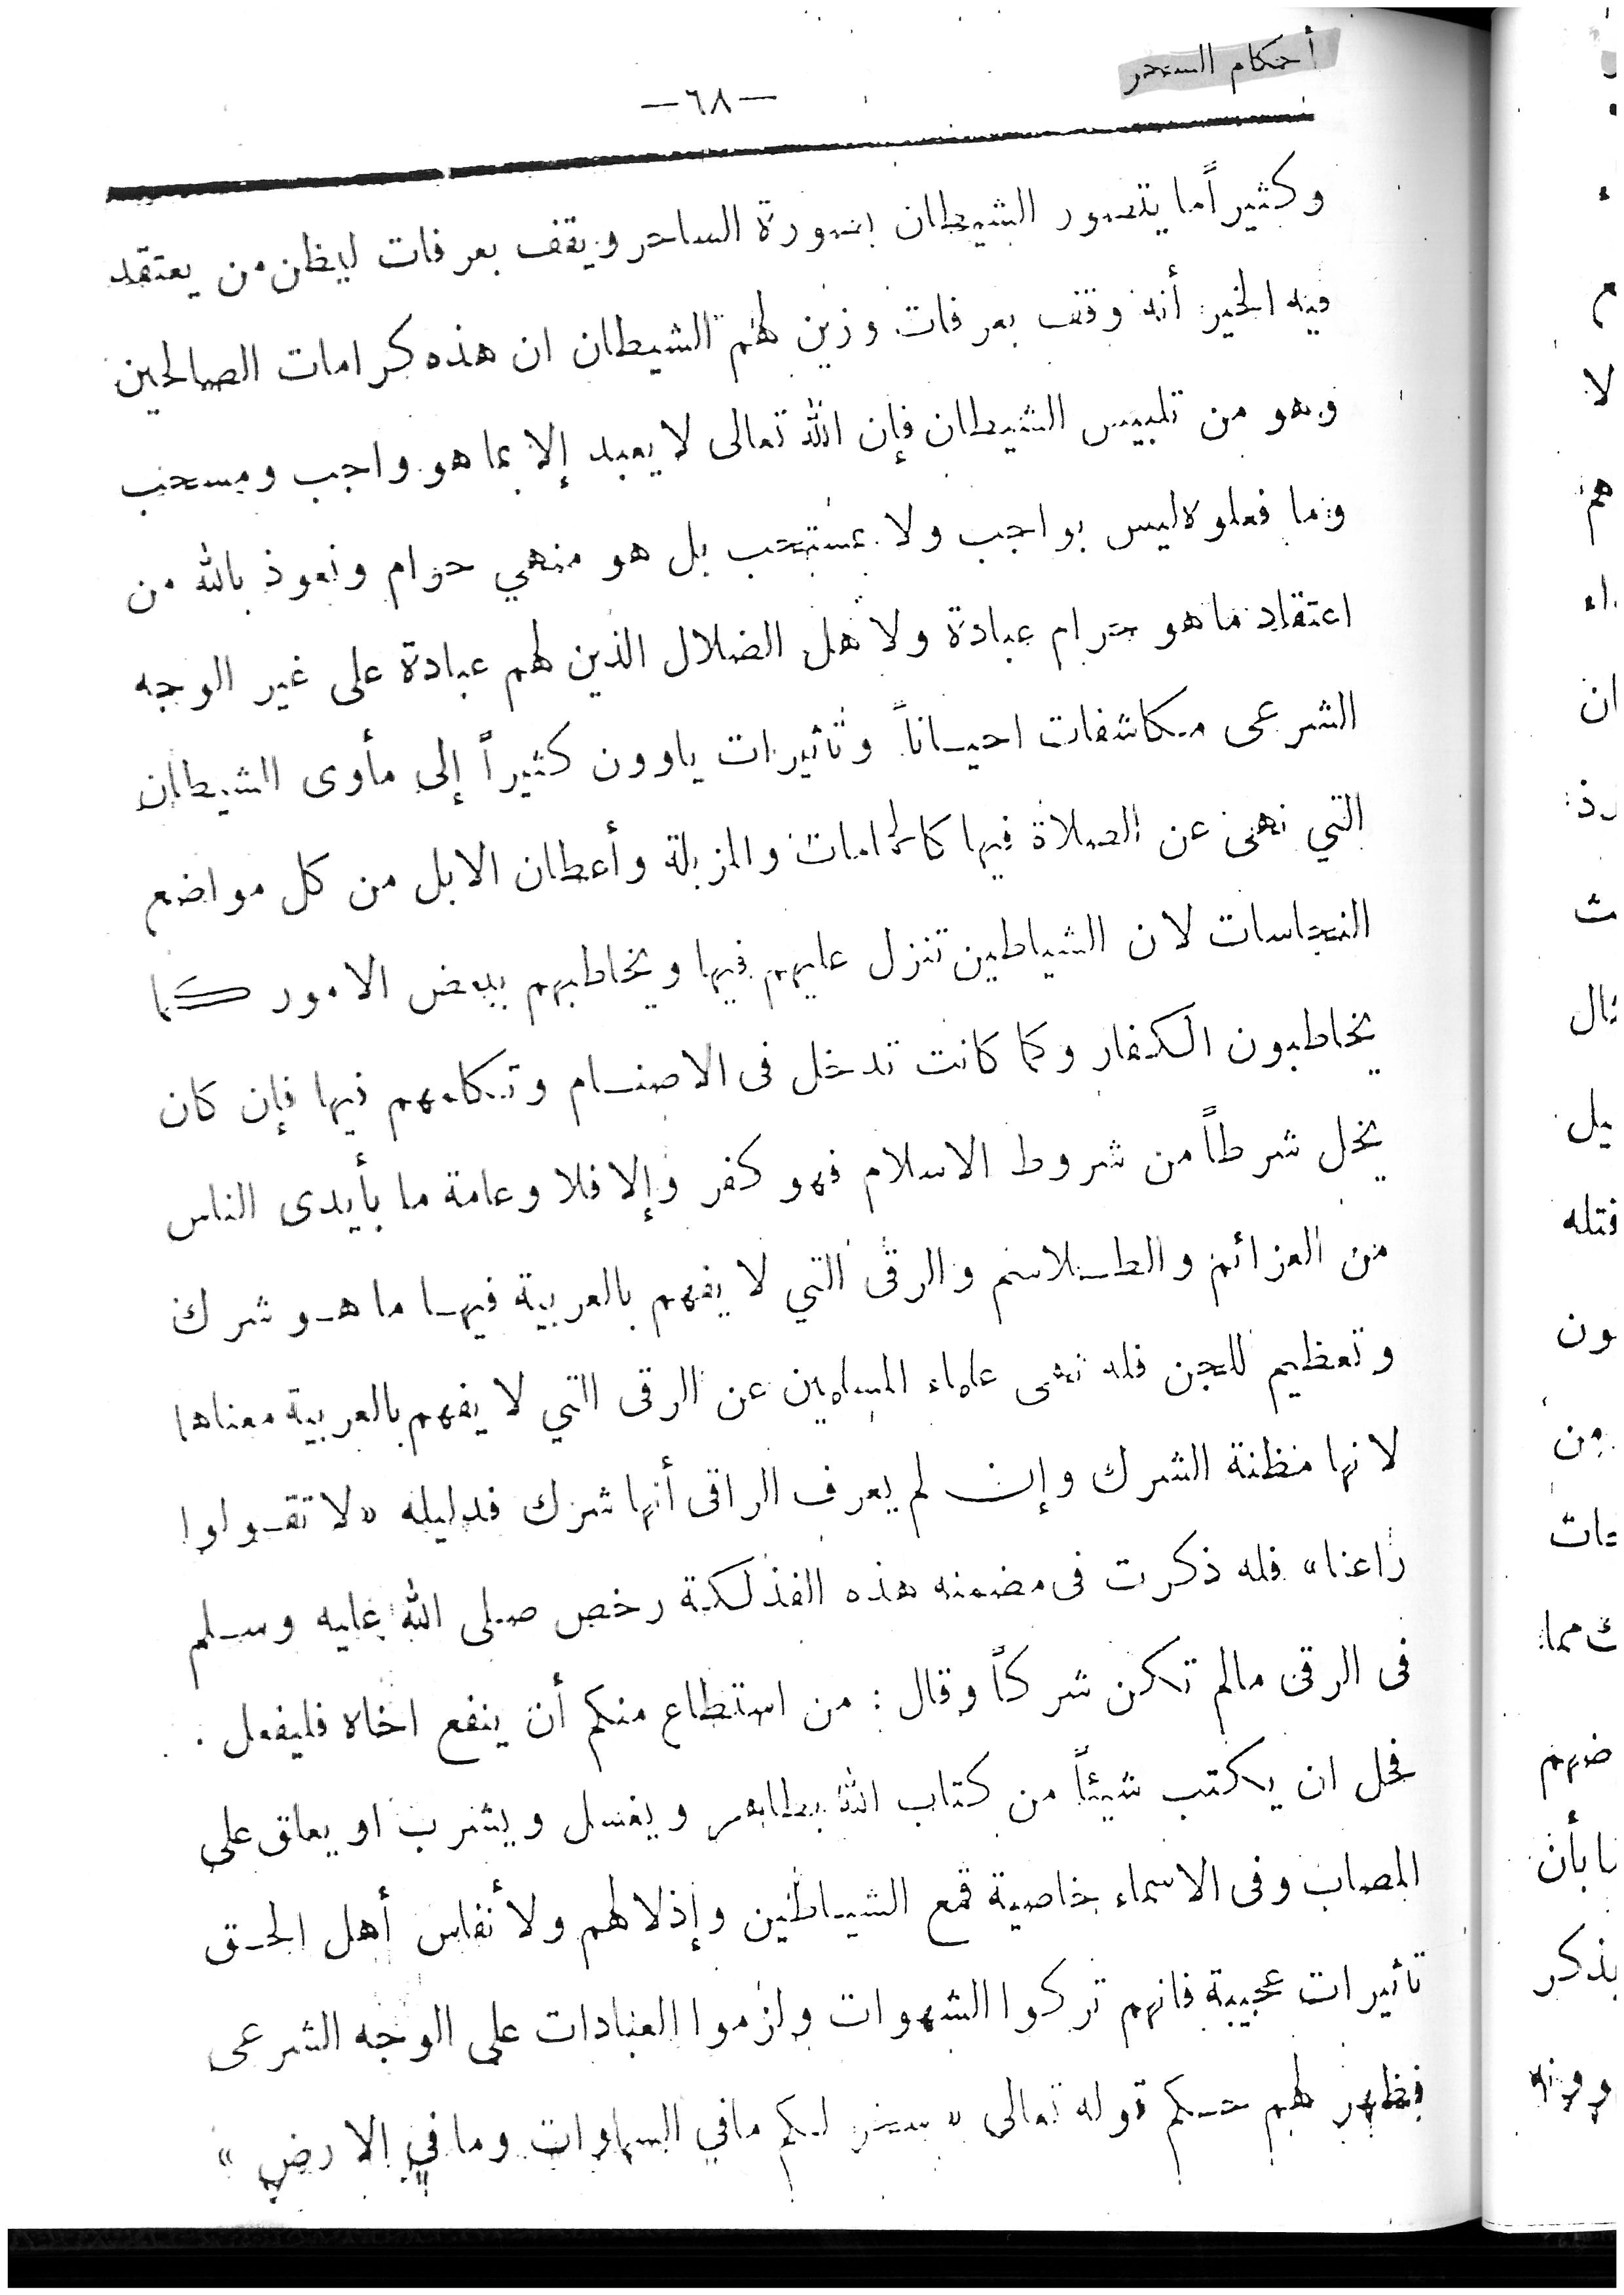 أحكام السحر
—٦٨—
وكثيراً ما يتصور الشيطان بصورة الساحر ويقف بعرفات ليظن من يعتقد
فيه الخير أنه وقف بعرفات وزين لهم الشيطان ان هذه كرامات الصالحين
وهو من تلبيس الشيطان فإن الله تعالى لا يعبد إلا بما هو واجب ومسحب
وما فعلوه ليس بواجب ولا بمستحب بل هو منهي حرام ونعوذ بالله من
اعتقاد ما هو حرام عبادة ولأهل الضلال الذين لهم عبادة على غير الوجه
الشرعى مكاشفات احياناً وتأثيرات ياوون كثيراً إلى مأوى الشيطان
التي نهى عن الصلاة فيها كالحمامات والمزبلة وأعطان الابل من كل مواضع
النجاسات لان الشياطين تنزل عليهم فيها ويخاطبهم ببعض الامور كما
يخاطبون الكفار وكما كانت تدخل فى الاصنام وتكلمهم فيها فإن كان
يخل شرطاً من شروط الاسلام فهو كفر وإلا فلا وعامة ما بأيدى الناس
من العزائم والطلاسم والرقى التي لا يفهم بالعربية فيها ما هو شرك
وتعظيم للجن فله نهى علماء المسلمين عن الرقى التي لا يفهم بالعربية معناها
لانها مظنة الشرك وإن لم يعرف الراقى أنها شرك فدليله «لا تقولوا
راعنا» فله ذكرت فى مضمنه هذه الفذلكة رخص صلى الله عليه وسلم
فى الرقى مالم تكن شركاً وقال : من استطاع منكم أن ينفع اخاه فليفعل .
فحل ان يكتب شيئاً من كتاب الله بطاهر ويغسل ويشرب او يعلق على
المصاب وفى الاسماء خاصية قمع الشياطين وإذلالهم ولأنفاس أهل الحق
تأثيرات عجيبة فانهم تركوا الشهوات ولزموا العبادات على الوجه الشرعى
فظهر لهم حكم قوله تعالى «سخر لكم مافي السماوات وما في الارض»